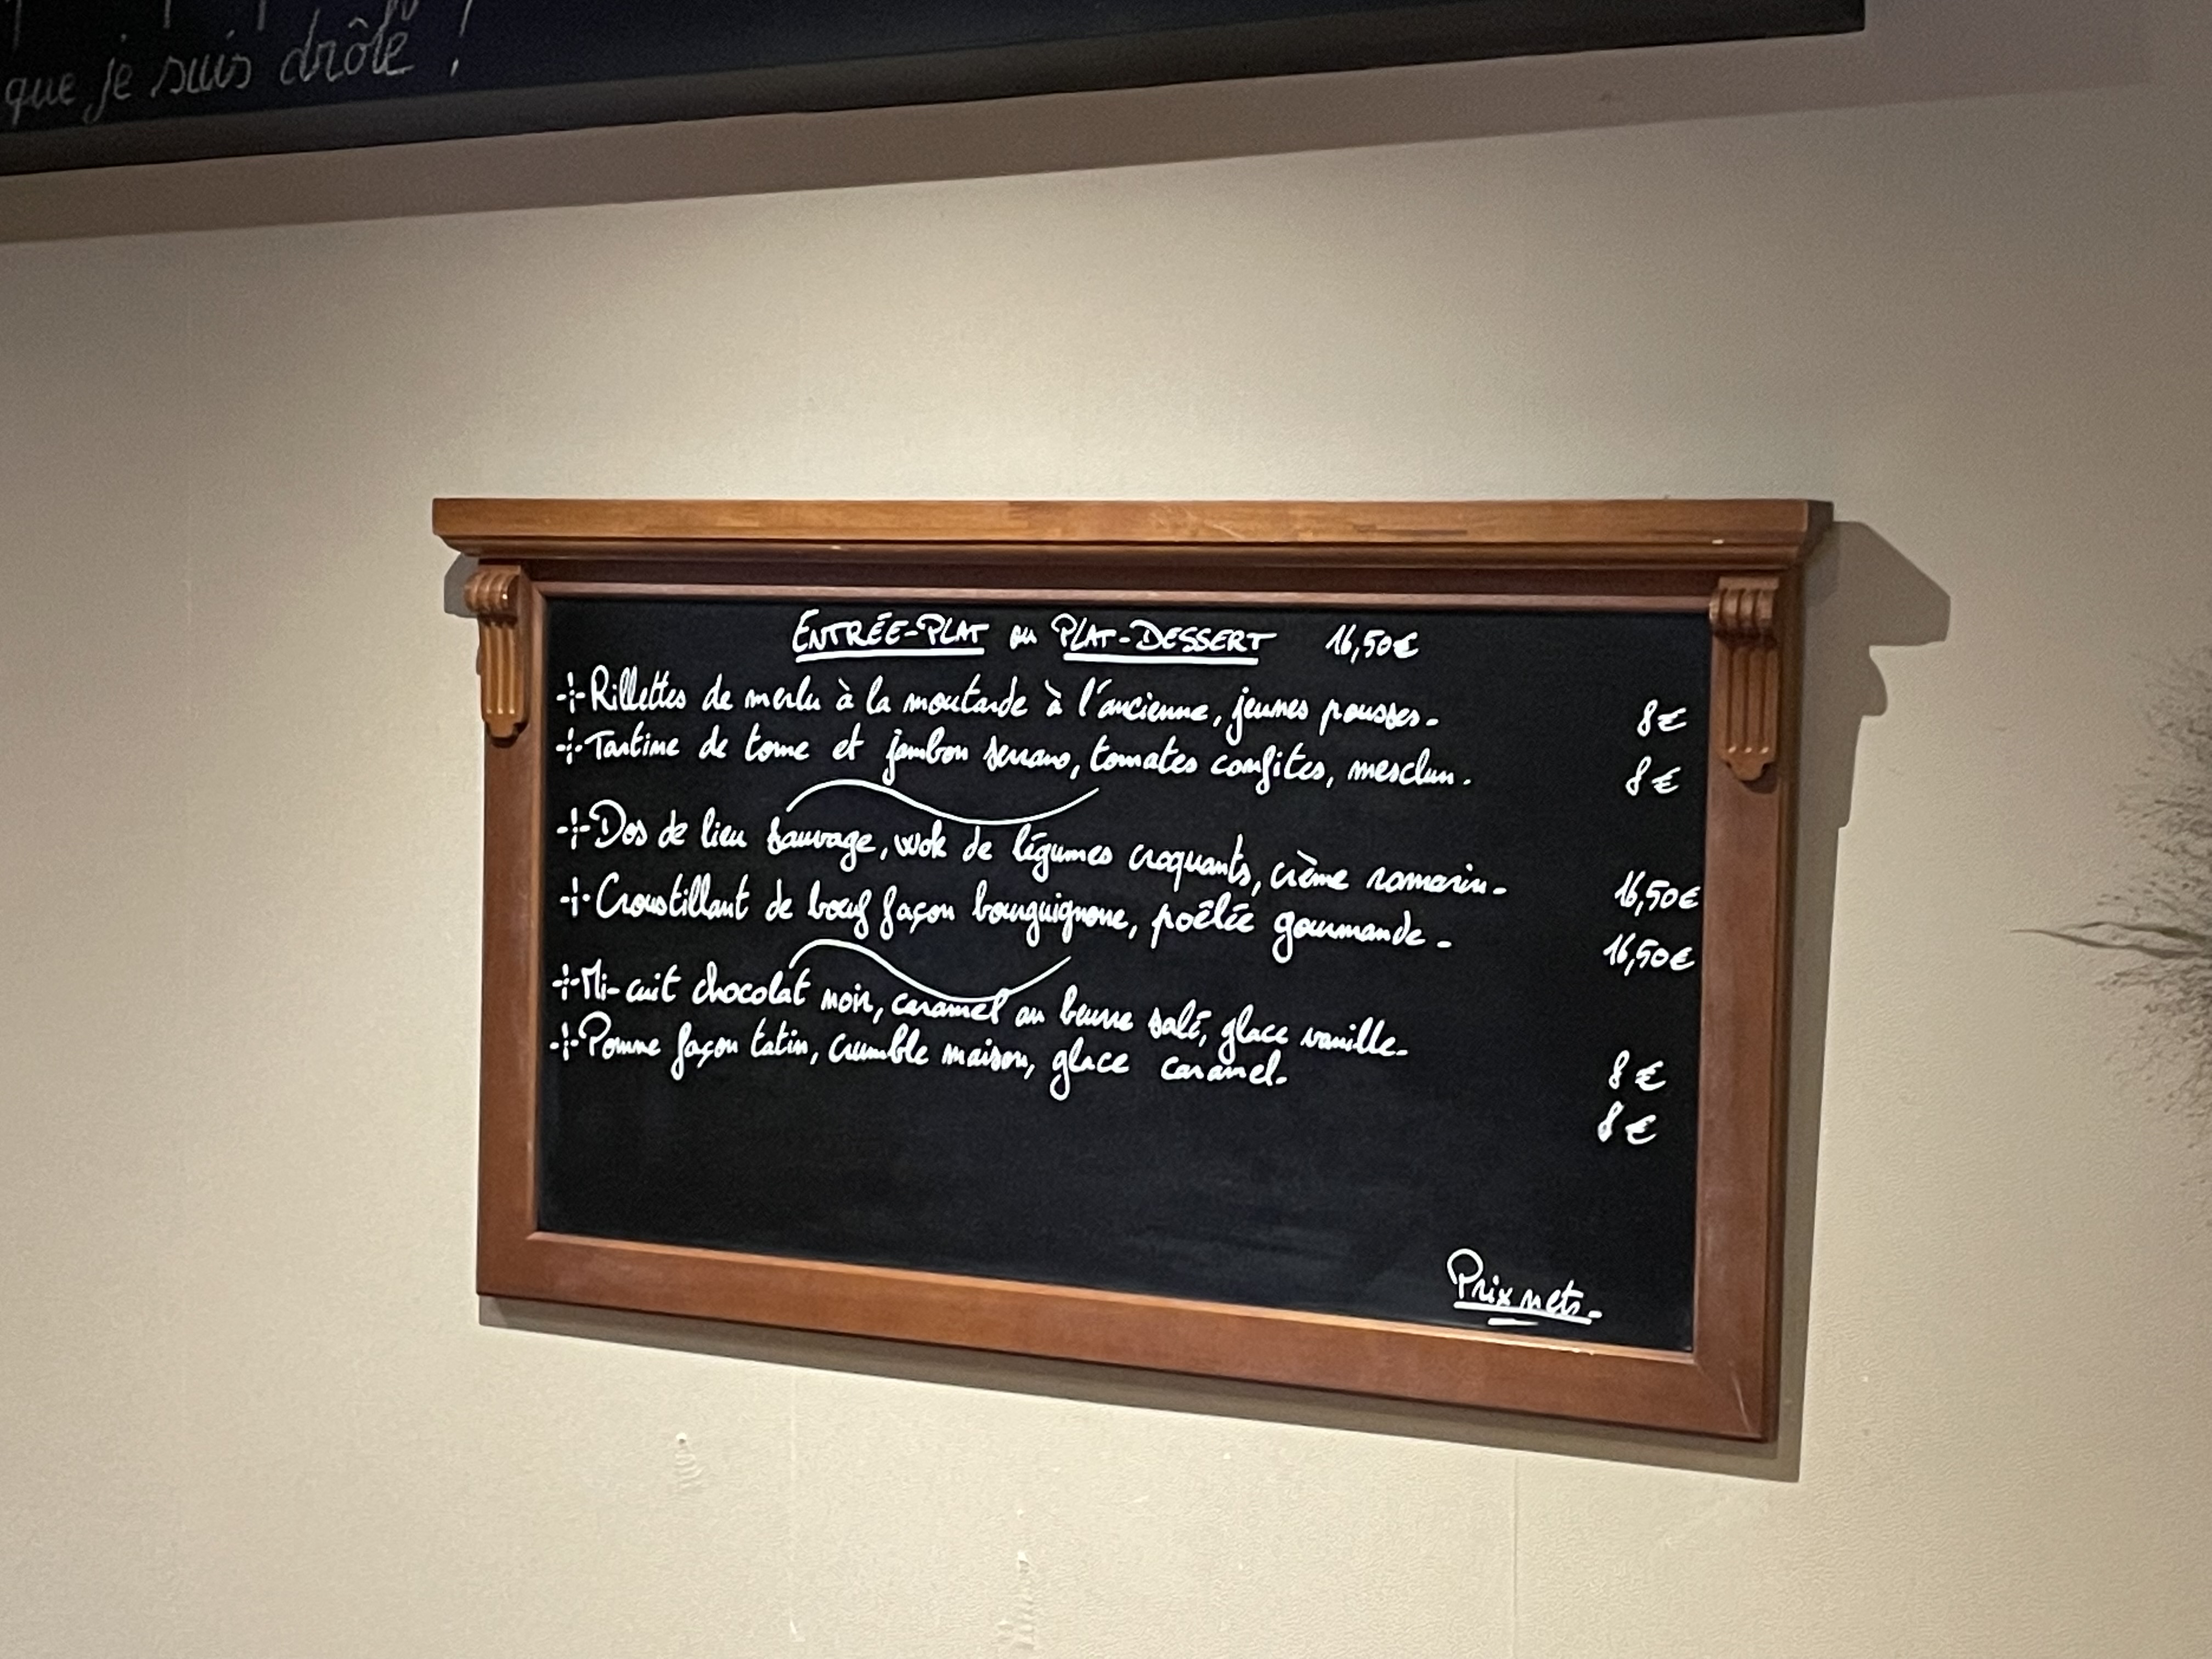 que je suis drôle !
ENTRÉE-PLAT ou PLAT-DESSERT 16,50€
Rillettes de merlu à la moutarde à l'ancienne, jeunes pousses. 8€
Tartine de tome et jambon serrano, tomates confites, mesclun. 8€
Dos de lieu sauvage, wok de légumes croquants, crème romarin. 16,50€
Croustillant de bœuf façon bourguignone, poêlée gourmande. 16,50€
Mi-cuit chocolat noir, caramel au beurre salé, glace vanille. 8€
Pomme façon tatin, crumble maison, glace caramel. 8€
Prix nets.